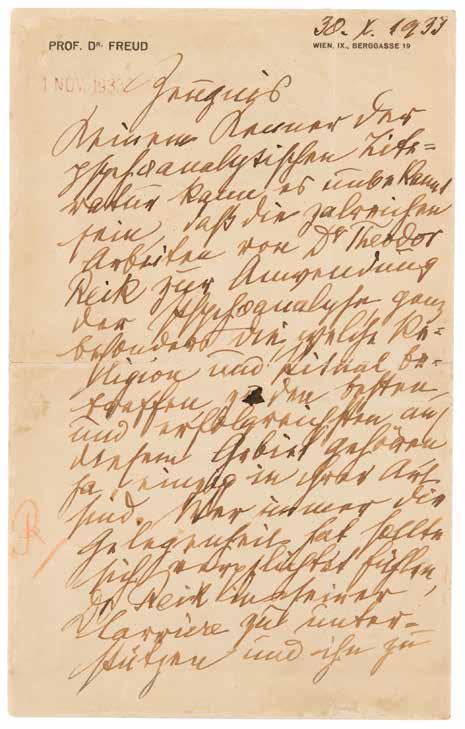 PROF. DR. FREUD
28. X. 1933
WIEN, IX., BERGGASSE 19
1 NOV. 193
Zeugnis
Keinem Kenner der
psychoanalytischen Lite-
ratur kann es unbekannt
sein, daß die zalreichen
Arbeiten von Dr Theodor
Reik zur Anwendung
der Psychoanalyse ganz
besonders die, welche Re-
ligion und Ritual be-
treffen, zu den besten
und erfolgreichsten auf
diesem Gebiet gehören
ja, einzig in ihrer Art
sind. Wer immer die
Gelegenheit hat sollte
sich verpflichtet fühlen,
Dr Reik in seiner
Karriere zu unter-
stützen und ihn zu